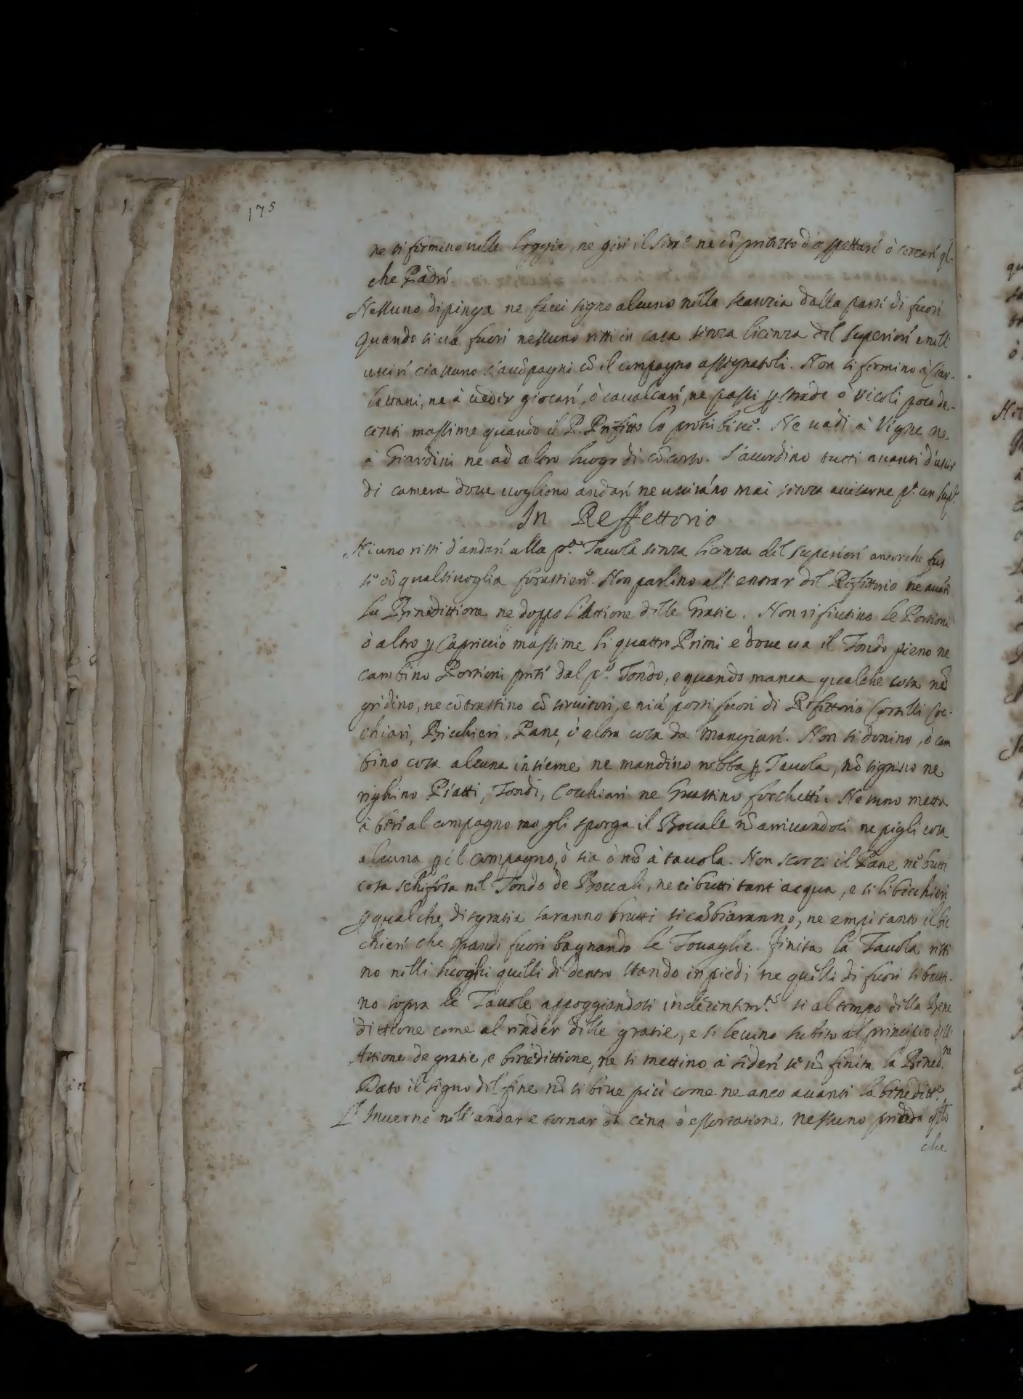 175
ne si fermino nelle loggie, ne giri il ne cō pretesto d'aspettari ò cercari
che Padri
Nessuno dipinga ne facci signo alcuno nella stanzia dalla parti di fuori
Quando si uà fuori nessuno resti in casa senza licenza del superiori e nell
usciri ciascuno s'accōpagni cō il compagno assignatoli. Non si fermino à Ciar-
latanni, ne à ueder giocari, ò caualcari, ne passi strade ò vicoli poco de-
centi massime quando il P. Prefetto lo Ne uadi à Vigne ne
à Giardini ne ad altro luogo di cōcorso. S'accordino tutti auanti d'uscir
di camera doue uogliono andari ne usciranno mai senza auisarne
In Reffettorio
Niuno resti d'andari alla pª Tauola senza licenza del superiori ancorche fus
sº cō qualsiuoglia forastierº. Non parlino all'entrar del Refettorio ne auāti
la Beneditione ne doppo l'Attione delle Gratie. Non rifiutino le Portioni
ò altro Capriccio massime li quattro Primi e doue ua il Tondo pieno ne
cambino Portioni dal pº Tondo, e quando manca qualche cosa nō
gridino, ne cōtrastino cō seruitori, e niū porti fuori di Refettorio Cortelli Coc-
chiari, Bicchieri, Pane, ò altra cosa da Mangiari. Non si donino, ò cam
bino cosa alcuna insieme ne mandino robba Tauola, nō signino ne
righino Piatti, Tondi, Cocchiari ne Guastino forchette Nessuno metta
à beri al compagno ma gli sporga il Boccale nō arriuandoci ne pigli cosa
alcuna il compagno, ò sia ò nō à tauola. Non scorzi il Pane, ne butti
cosa schifosa nel Tondo de Boccali, ne ci butti tant'acqua, e si li bicchieri
qualche disgratia saranno brutti si cābiaranno, ne empi tanto il bi
chieri che spandi fuori bagnando le Touaglie. Finita la Tauola resti
no nelli luoghi quelli di dentro stando in piedi ne quelli di fuori si butti-
no sopra le Tauole appoggiandosi si al tempo della Bene
dittione come al render delle gratie, e si leuino subito al principio dell
Attione de gratie, e beneditione, ne si mettino à sederi sº nō finita la Benedne
Dato il signo del fine nō si beue più come ne anco auanti la beneditte
L'Inuerno nell'andar e tornar da cena ò essortatione nessuno
che